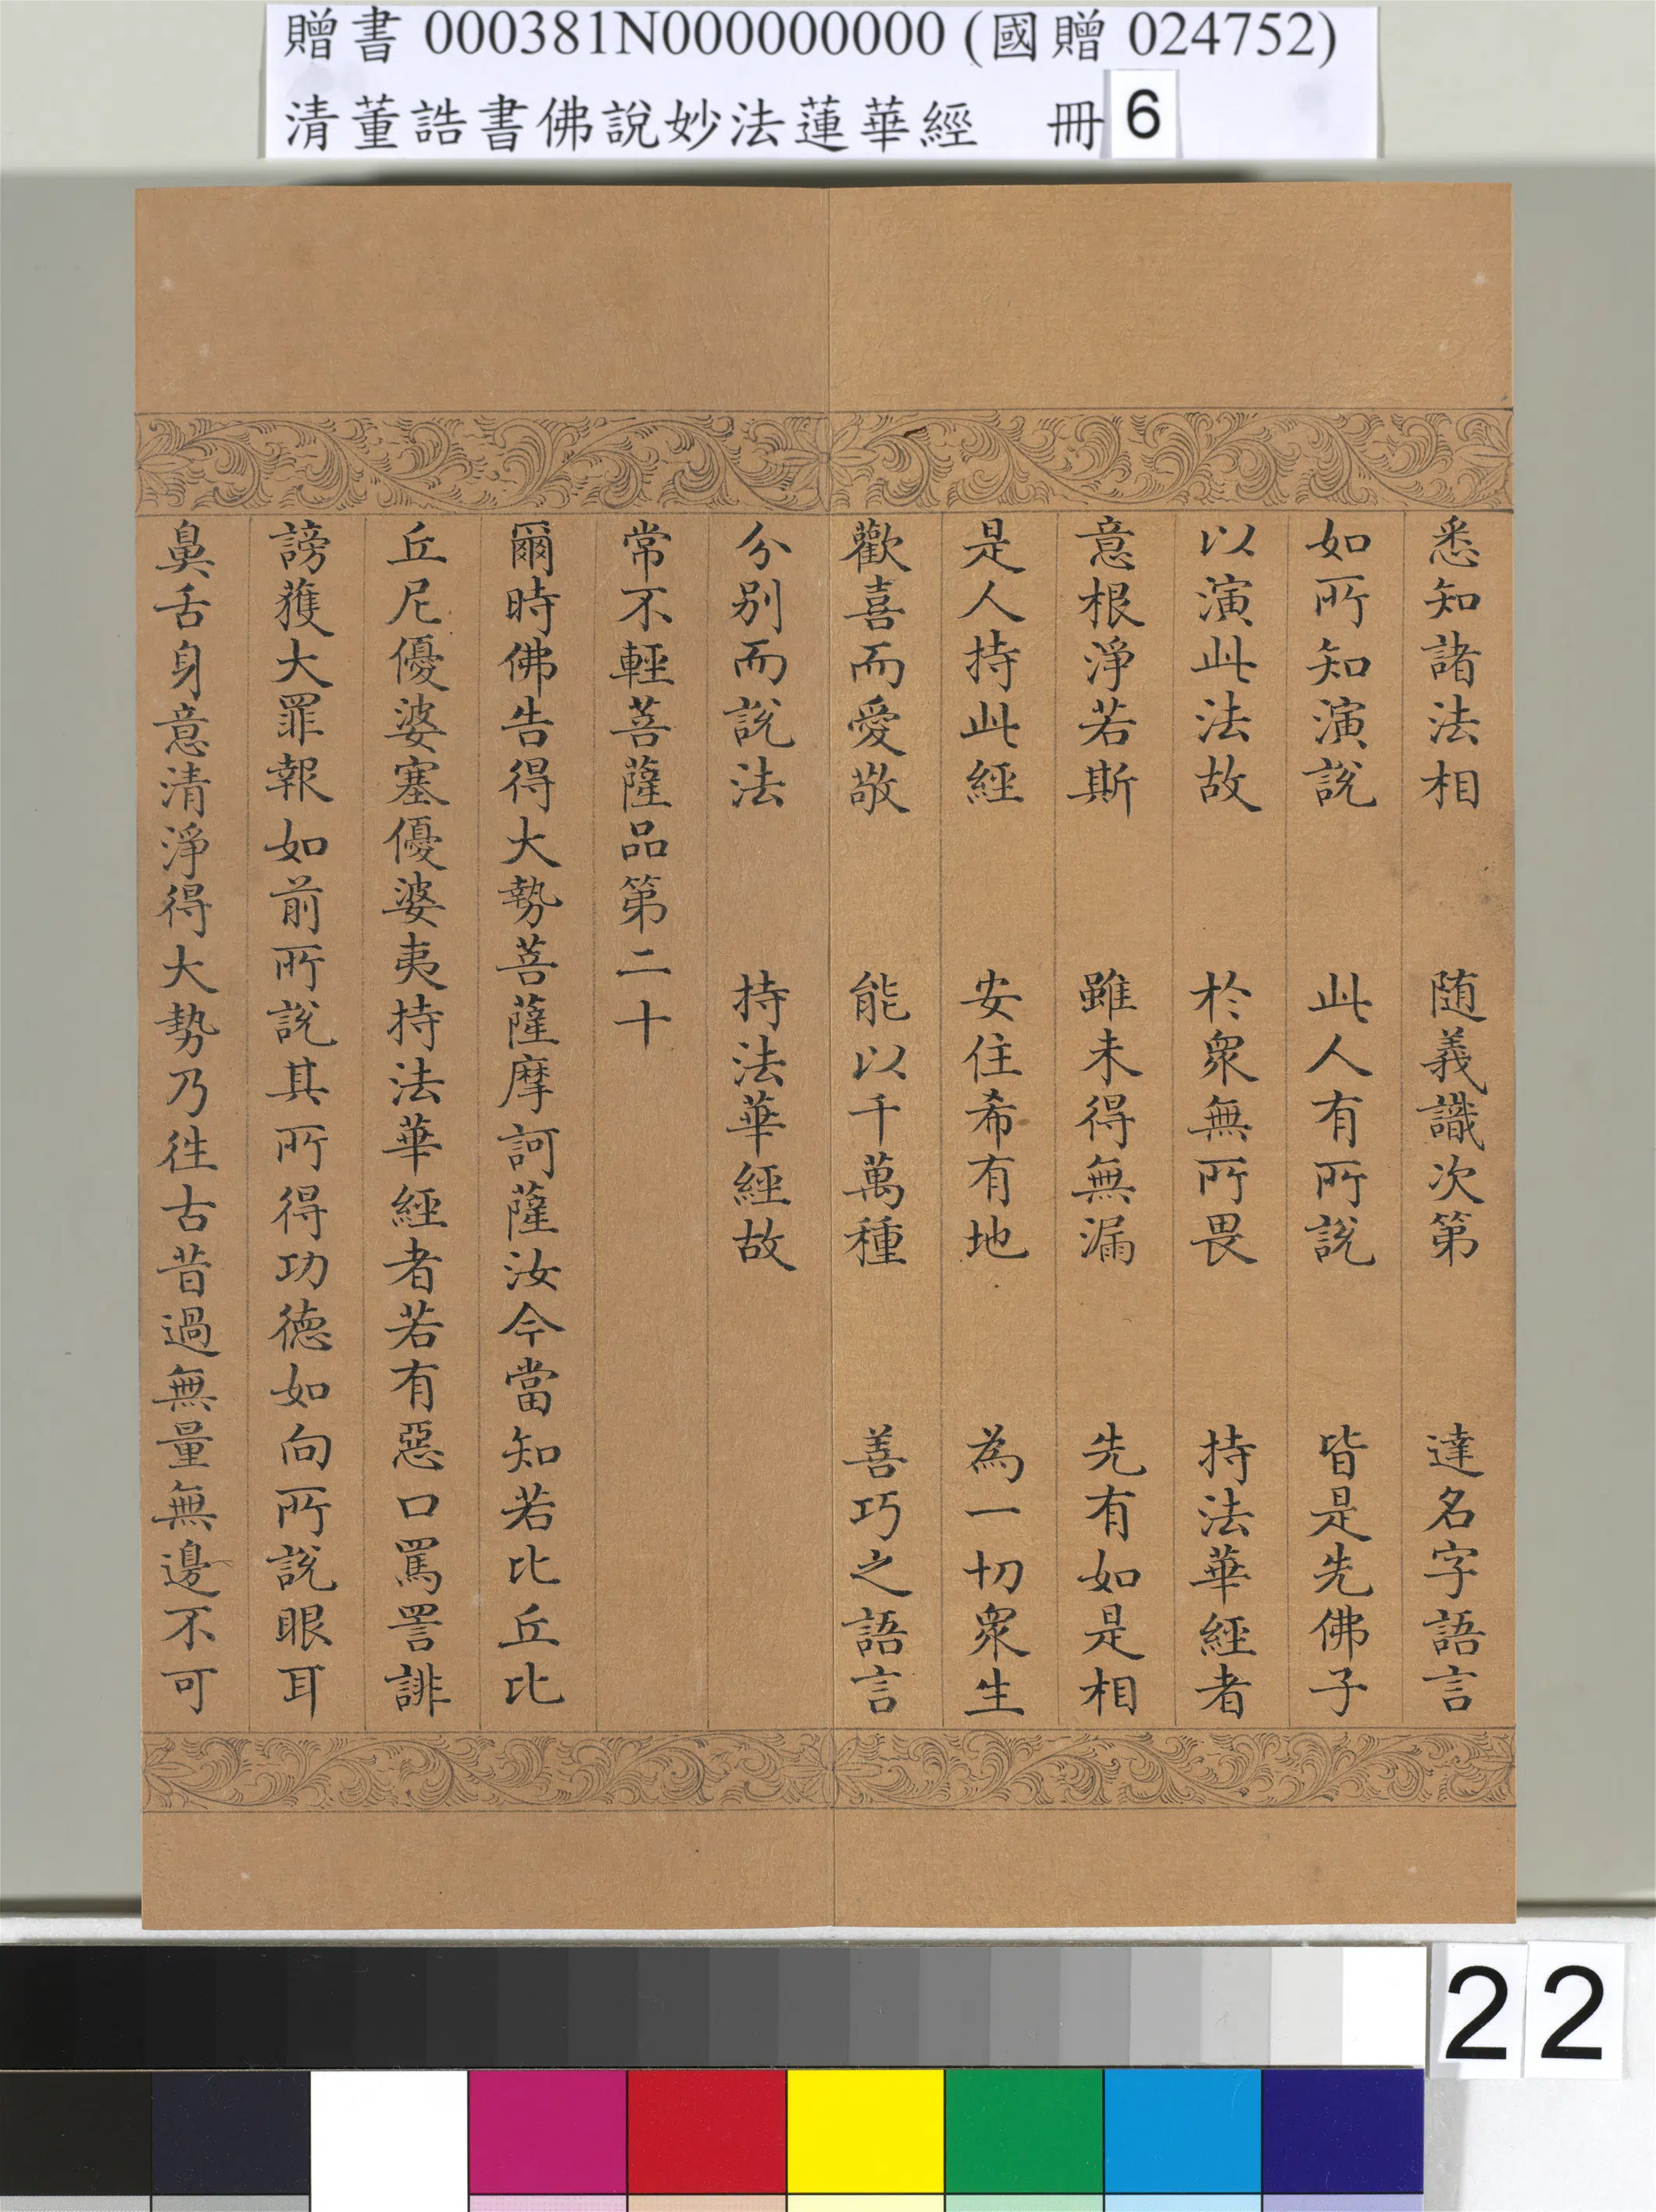 贈書 000381N000000000 (國贈 024752)
清董誥書佛說妙法蓮華經 冊 6
悉知諸法相 随義識次第 達名字語言
如所知演說 此人有所說 皆是先佛子
以演此法故 於衆無所畏 持法華經者
意根淨若斯 雖未得無漏 先有如是相
是人持此經 安住希有地 為一切衆生
歡喜而愛敬 能以千萬種 善巧之語言
分別而說法 持法華經故
常不輕菩薩品第二十
爾時佛告得大勢菩薩摩訶薩汝今當知若比丘比
丘尼優婆塞優婆夷持法華經者若有惡口罵詈誹
謗獲大罪報如前所說其所得功德如向所說眼耳
鼻舌身意清淨得大勢乃徃古昔過無量無邊不可
22